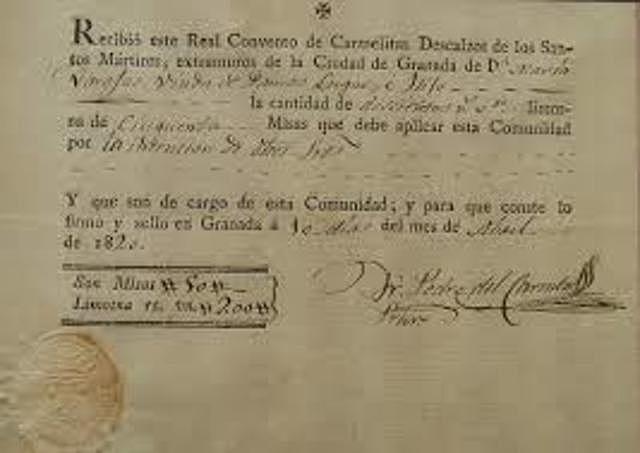 ✠
Recibió este Real Convento de Carmelitas Descalzos de los San-
tos Mártires, extramuros de la Ciudad de Granada de Dª María
Viuda de
la cantidad de doscientos rˢ vⁿ limos-
na de Cinquenta Misas que debe aplicar esta Comunidad
por la intencion de
Y que son de cargo de esta Comunidad; y para que conste lo
firmo y sello en Granada á 10 dias del mes de Abril
de 182
Son Misas 50
Limosna rs. vn. 200
Fr. Pedro del
Prior